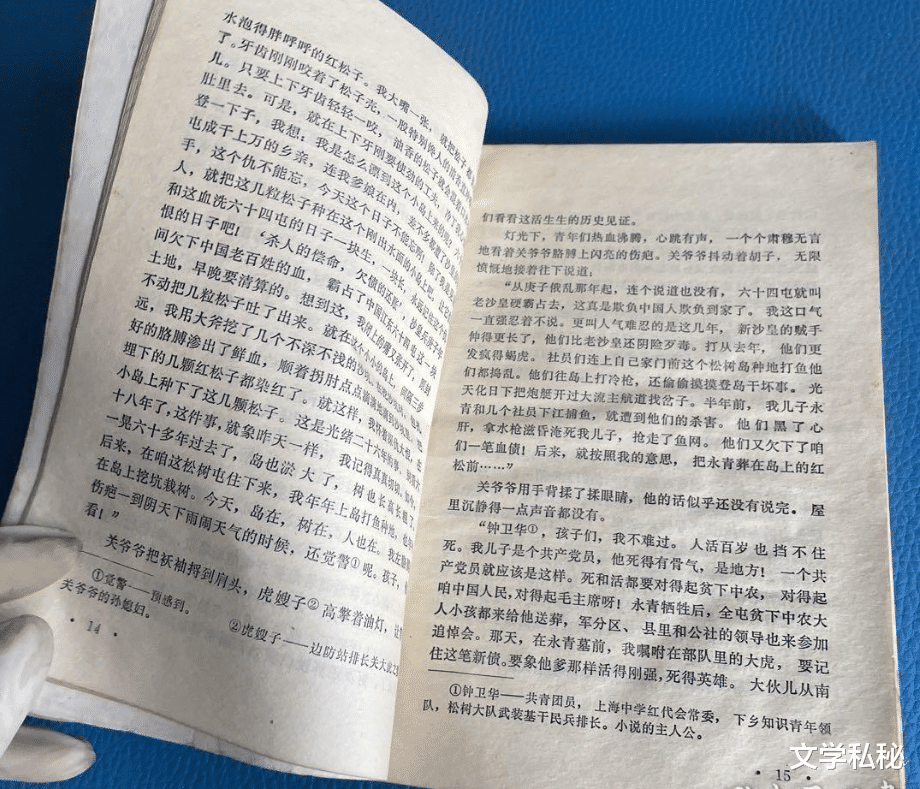 水泡得胖呼呼的红松子。我大嘴一张，就把松子
了。牙齿刚刚咬着了松子壳，一股特别
儿。只要上下牙齿轻轻一咬，油香的松子
肚里去。可是，就在上下牙刚要使劲的工夫，
登一下子，我想：我是怎么漂到这个小岛上来的
屯成千上万的乡亲，连我爹娘在内，
手，这个仇不能忘，今天这个日子不能忘啊！
人，就把这几粒松子种在这个刚出水面的小岛上吧，
和这血洗六十四屯的日子一块生，一块长，永远记住这个
恨的日子吧！‘杀人的偿命，欠债的还账’，沙皇
间欠下中国老百姓的血，霸占了中国江东六十四屯这一块
土地，早晚要清算的。想到这，我闭上的嘴又张开了，
不动把几粒松子吐了出来。就在这个小小的岛上，
远，我用大斧挖了几个不深不浅的
好的胳膊渗出了鲜血，顺着拐肘点点滴
埋下的几颗红松子都染红了。就这样，我
小岛上种下了这几颗松子。这是光绪二十六年的事，
十八年了，这件事，就象昨天一样，我记得真真切切。
一晃六十多年过去了，岛也淤大了，树也长高长粗了。
后来，在咱这松树屯住下来，我年年上岛打鱼种地，
在岛上挖坑栽树。今天，岛在，树在，人也在。我左胳膊
伤疤一到阴天下雨闹天气的时候，还觉警①呢。孩子，
看！”
关爷爷把袄袖捋到肩头，虎嫂子②高擎着油灯，让
①觉警——预感到。
②虎嫂子——边防站排长关大虎之
关爷爷的孙媳妇。
· 14 ·
们看看这活生生的历史见证。
灯光下，青年们热血沸腾，心跳有声，一个个肃穆无言
地看着关爷爷胳膊上闪亮的伤疤。关爷爷抖动着胡子，无限
愤慨地接着往下说道：
“从庚子俄乱那年起，连个说道也没有，六十四屯就叫
老沙皇硬霸占去，这真是欺负中国人欺负到家了。我这口气
一直强忍着不说。更叫人气难忍的是这几年，新沙皇的贼手
伸得更长了，他们比老沙皇还阴险歹毒。打从去年，他们更
发疯得蝎虎。社员们连上自己家门前这个松树岛种地打鱼他
们都捣乱。他们往岛上打冷枪，还偷偷摸摸登岛干坏事。光
天化日下把炮艇开过大流主航道找岔子。半年前，我儿子永
青和几个社员下江捕鱼，就遭到他们的杀害。他们黑了心
肝，拿水枪滋昏淹死我儿子，抢走了鱼网。他们又欠下了咱
们一笔血债！后来，就按照我的意思，把永青葬在岛上的红
松前……”
关爷爷用手背揉了揉眼睛，他的话似乎还没有说完。屋
里沉静得一点声音都没有。
“钟卫华①，孩子们，我不难过。人活百岁也挡不住
死。我儿子是个共产党员，他死得有骨气，是地方！一个共
产党员就应该是这样。死和活都要对得起贫下中农，对得起
咱中国人民，对得起毛主席呀！永青牺牲后，全屯贫下中农大
人小孩都来给他送葬，军分区、县里和公社的领导也来参加
追悼会。那天，在永青墓前，我嘱咐在部队里的大虎，要记
住这笔新债。要象他爹那样活得刚强，死得英雄。大伙儿从南
①钟卫华——共青团员，上海中学红代会常委，下乡知识青年领
队，松树大队武装基干民兵排长。小说的主人公。
· 15 ·
文学私秘